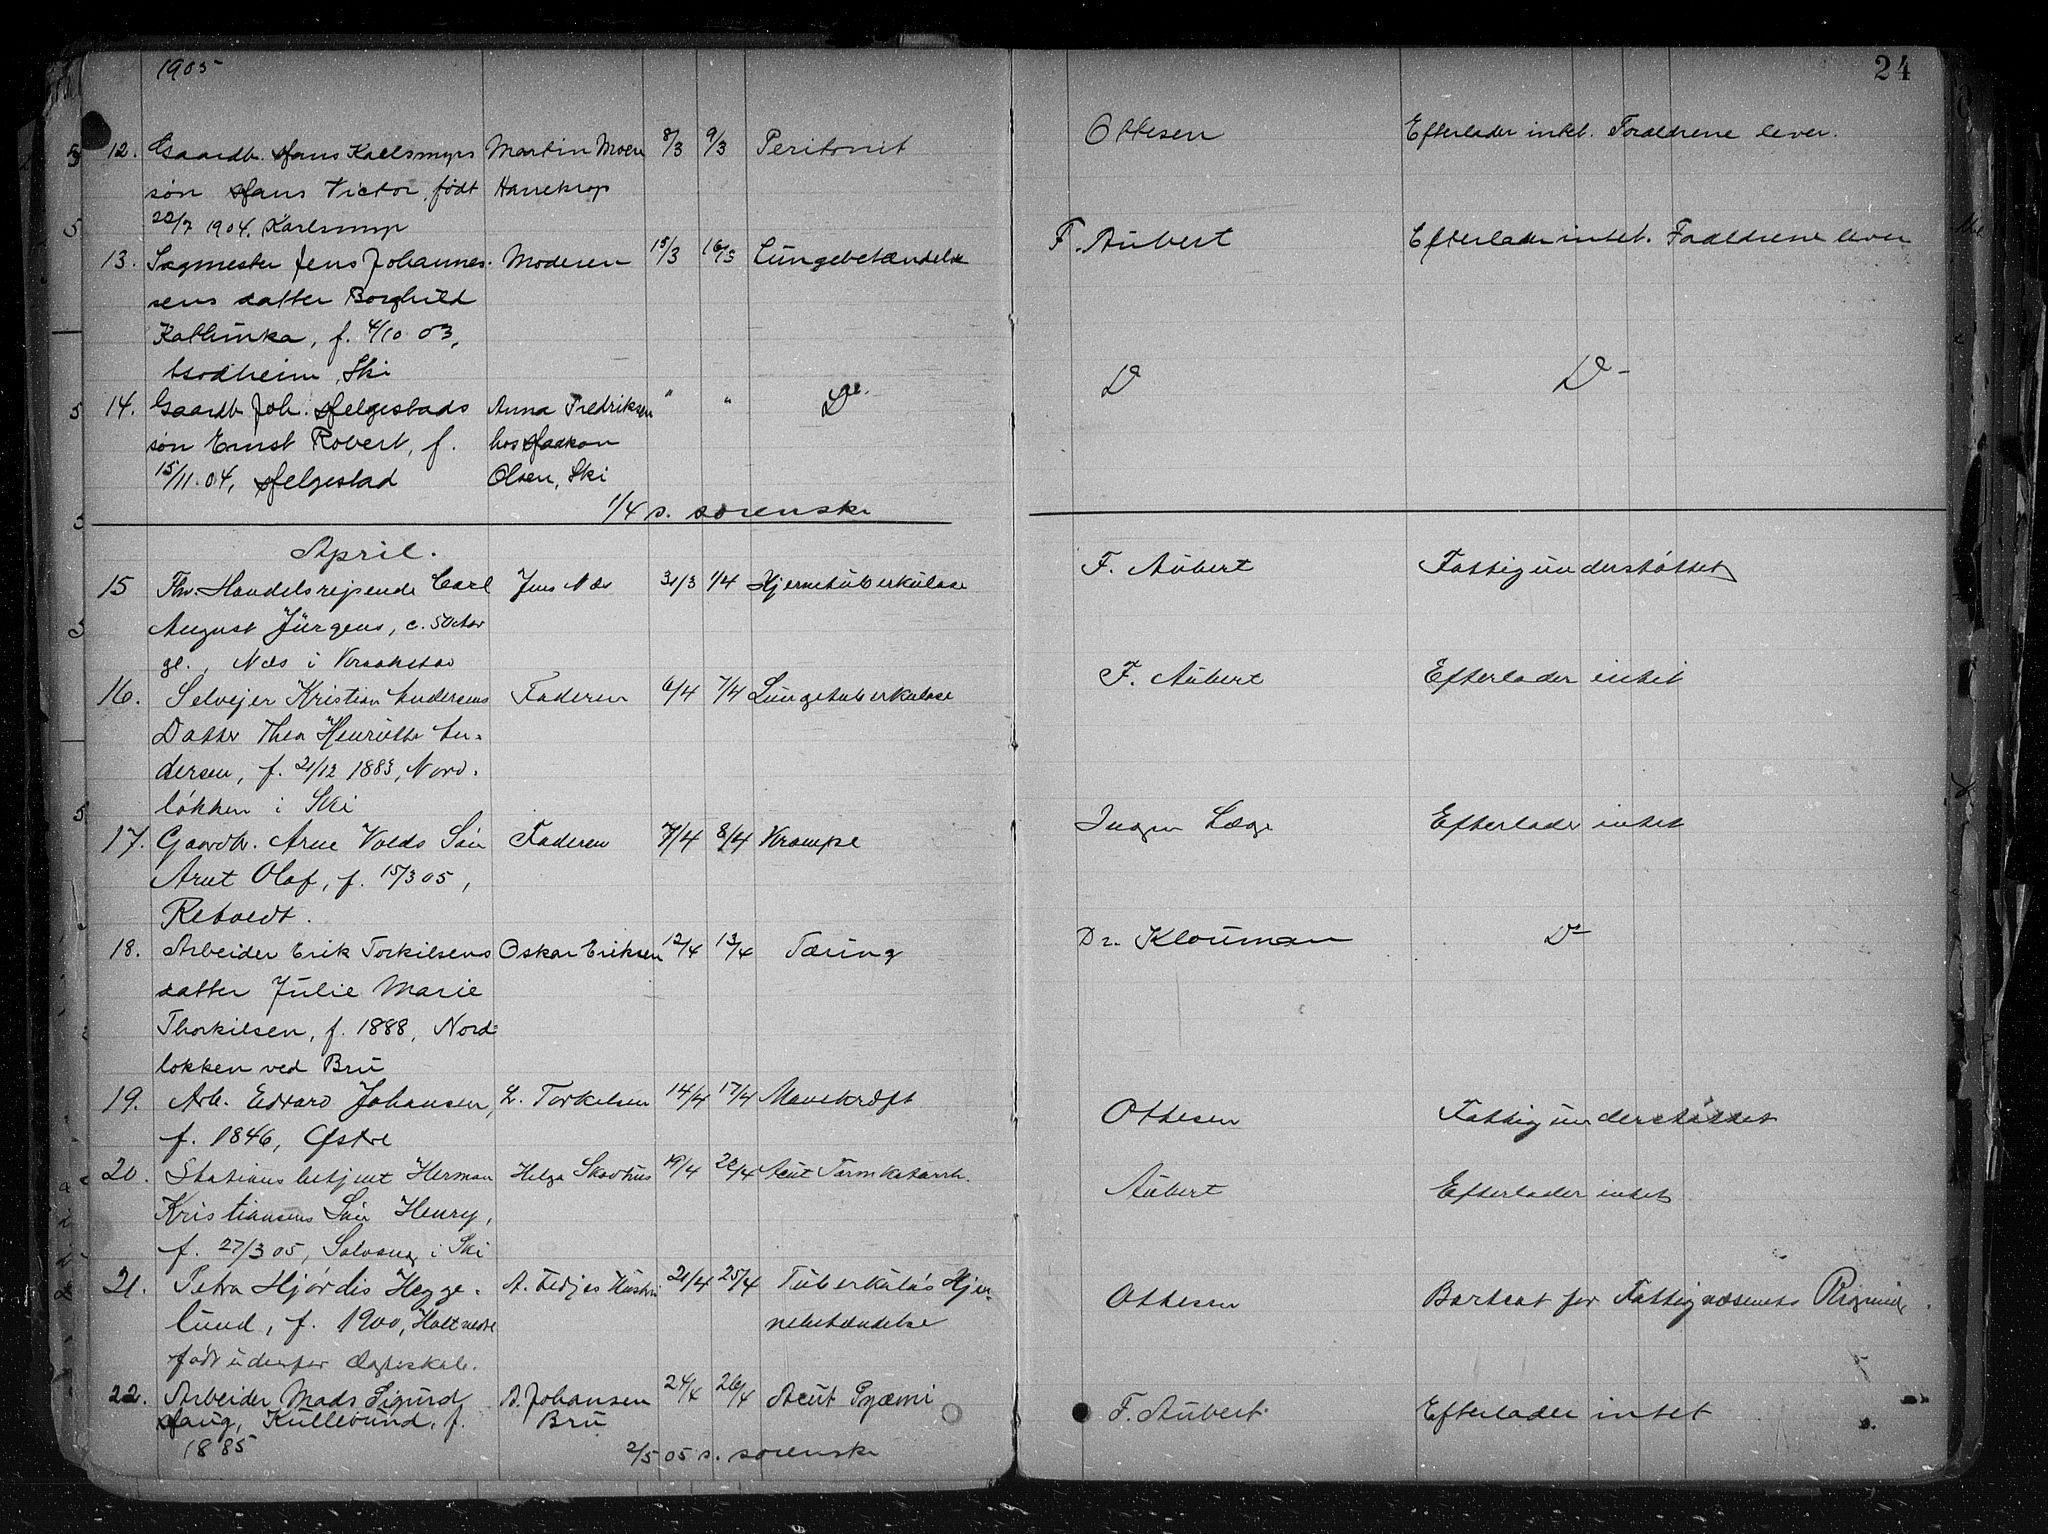 1905
24
12. Gaardb. Hans Karlsmyrs Martin Moen 8/3 9/3 Peritonit Ottesen Efterlader intet. Forældrene lever.
søn Hans Victor, født
22/7 1904. Karlsmyr
13. Sagmester Jens Johannes- Moderen 15/3 16/3 Lungebetændelse F. Aubert Efterlader intet. Forældrene lever
sens datter Borghild
Kathinka, f. 4/10 03,
Ski
14. Gaardb. Joh. Helgestads Anna Fredriksen " " Do. Do Do-
søn Ernst Robert, f. hos Haakon
15/11.04, Helgestad Olsen, Ski
1/4 s. sorenskr
April.
15 Fhv. Handelsrejsende Carl Jens Næs 31/3 1/4 Hjernetuberkulose F. Aubert Fattigunderstøttet
August Jürgens, c. 50 Aar
gl., Næs i Kraakstad
16. Selvejer Kristian Andersens Faderen 6/4 7/4 Lungetuberkulose F. Aubert Efterlader intet
Datter Thea Henriette An-
dersen, f. 21/12 1883, Nord-
løkken i Ski
17. Gaardbr. Arne Volds Søn Faderen 7/4 8/4 Krampe Ingen Læge Efterlader intet
Arnt Olaf, f. 15/3 05,
Retvedt.
18. Arbeider Erik Torkilsens Oskar Eriksen 12/4 13/4 Tæring Dr. Klouman Do
datter Julie Marie
Thorkilsen, f. 1888, Nord-
løkken ved Bru
19. Arb. Edvard Johansen, L. Torkelsen 14/4 17/4 Mavekræft Ottesen Fattigunderstøttet
f. 1846, Østre
20. Stationsbetjent Herman Helga Skovhus 19/4 22/4 Acut Tarmkatarrh. Aubert Efterlader intet
Kristiansens Søn Henry,
f. 27/3 05, Solvang i Ski
21. Petra Hjørdis Hegge- 21/4 25/4 Tuberkuløs Hjer- Ottesen Bortsat for Fattigvæsenets Regning.
lund, f. 1900, Holt nedre nebetændelse
født udenfor Ægteskab.
22. Arbeider Mads Sigurd A. Johansen 24/4 26/4 Acut Pyæmi F. Aubert Efterlader intet
Haug, Kullebund, f. Bru
1885
2/5 05 s. sorenskr